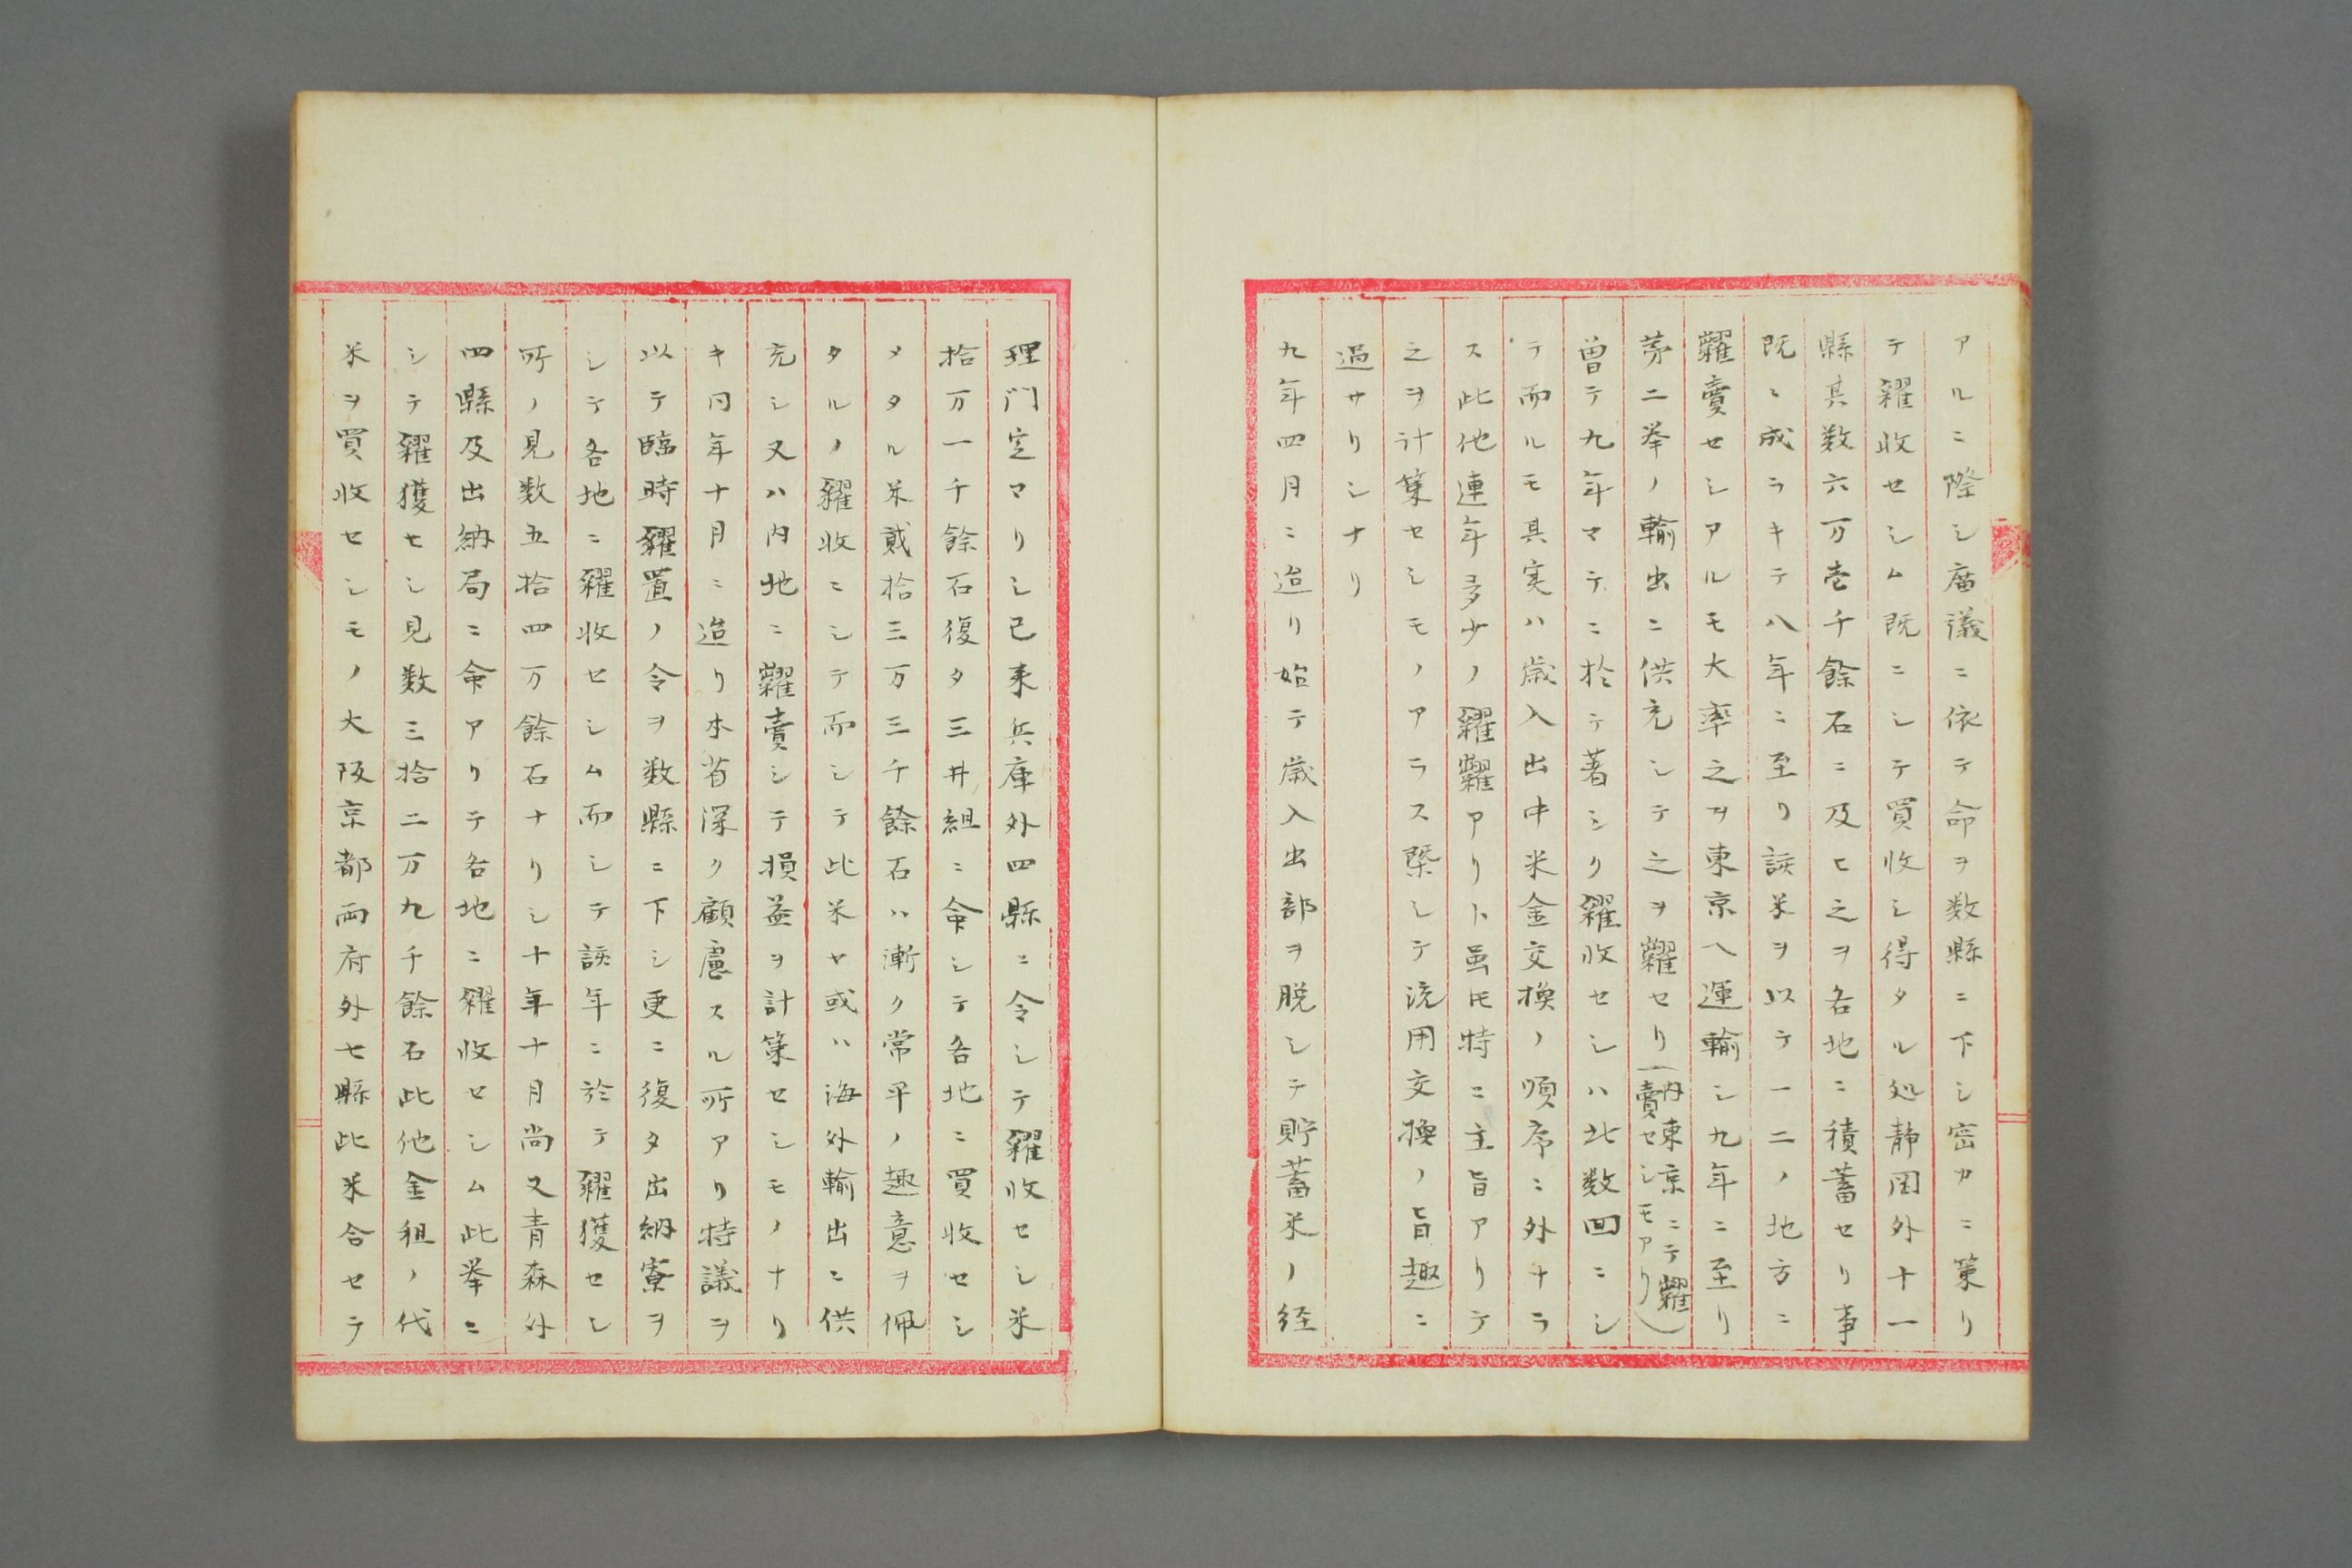 アルニ際シ廟議ニ依テ命ヲ数縣ニ下シ密カニ策リ
テ糴收セシム既ニシテ買收シ得タル処静岡外十一
縣其数六万壱千餘石ニ及ヒ之ヲ各地ニ積蓄セリ事
既ニ成ラキテ八年ニ至リ該米ヲ以テ一二ノ地方ニ
糶賣セシアルモ大率之ヲ東京ヘ運輸シ九年ニ至リ
第二举ノ輸出ニ供充シテ之ヲ糶セリ(内東京ニテ糶
賣セシモアリ)
曽テ九年マテニ於テ著シク糴收セシハ此数回ニシ
テ而ルモ其実ハ歳入出中米金交換ノ順序ニ外ナラ
ス此他連年多少ノ糴糶アリト虽𪜈特ニ主旨アリテ
之ヲ計策セシモノアラス槩シテ流用交換ノ旨趣ニ
過サリシナリ
九年四月ニ迨リ始テ歳入出部ヲ脱シテ貯蓄米ノ経
理門定マリシ已来兵庫外四縣ニ令シテ糴收セシ米
拾万一千餘石復タ三井組ニ命シテ各地ニ買收セシ
メタル米貳拾三万三千餘石ハ漸ク常平ノ趣意ヲ佩
タルノ糴收ニシテ而シテ此米ヤ或ハ海外輸出ニ供
充シ又ハ内地ニ糶賣シテ損益ヲ計策セシモノナリ
キ同年十月ニ迨リ本省深ク顧慮スル所アリ特議ヲ
以テ臨時糴置ノ令ヲ数縣ニ下シ更ニ復タ出納寮ヲ
シテ各地ニ糴收セシム而シテ該年ニ於テ糴獲セシ
所ノ見数五拾四万餘石ナリシ十年十月尚又青森外
四縣及出納局ニ命アリテ各地ニ糴收セシム此举ニ
シテ糴獲セシ見数三拾二万九千餘石此他金租ノ代
米ヲ買收セシモノ大阪京都両府外七縣此米合セテ